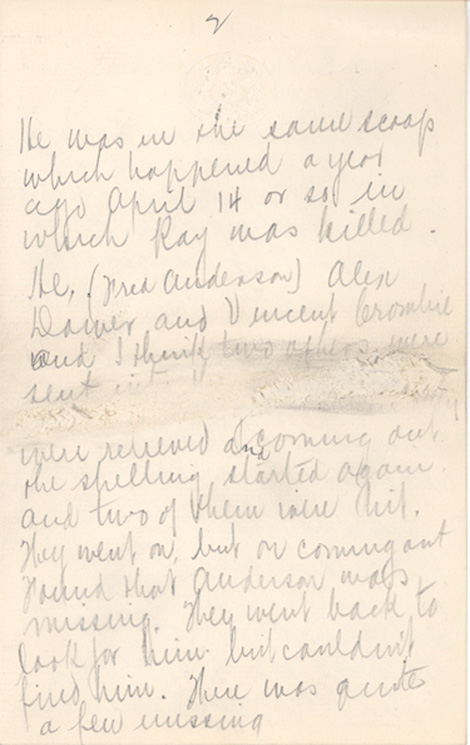 2
He was in the same scrap
which happened a year
ago April 14 or so in
which Ray was killed.
He, (Fred Anderson) Alex
and Vincent Crombie
and I think two others were
sent in
were relieved and coming out
the shelling started again
and two of them were hit.
They went on, but on coming out
found that Anderson was
missing. They went back to
look for him but couldn't
find him. There was quite
a few missing